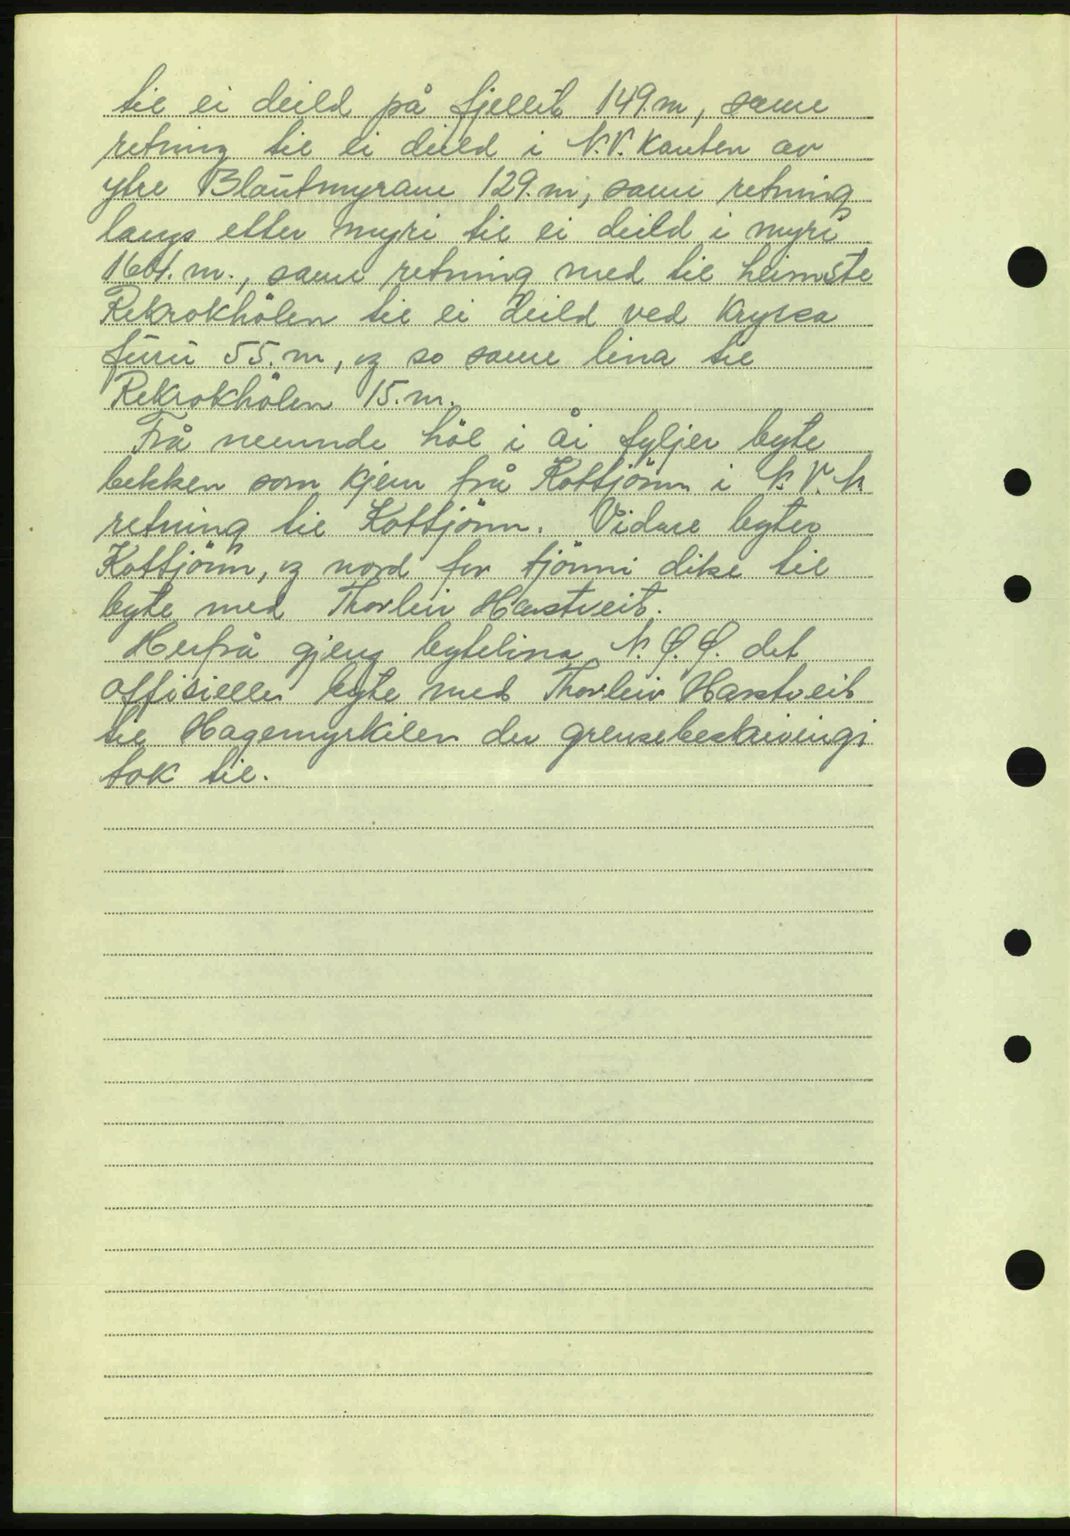 til ei deild på fjellet 149.m, same
retning til ei deild i N.V. kanten av
ytre Blautmyrane 129.m, same retning
langs etter myri til ei deild i myri
m., same retning ned til heimste
Rekrokhölen til ei deild ved Kryssa
furu 55.m, og so same lina til
Rekrokhölen 15.m.
Frå nemnde höl i åi fyljer byte
bekken som kjem frå Kottjönn i N.V.N.
retning til Kottjönn. Vidare byter
Kottjönn, og nord for tjönni dike til
byte med Thorleiv Harstveit.
Herfrå gjeng bytelina N.Ø.Ø. det
offisielle byte med Thorleiv Harstveit
til Hagemyrkilen der grensebeskrivingi
tok til.